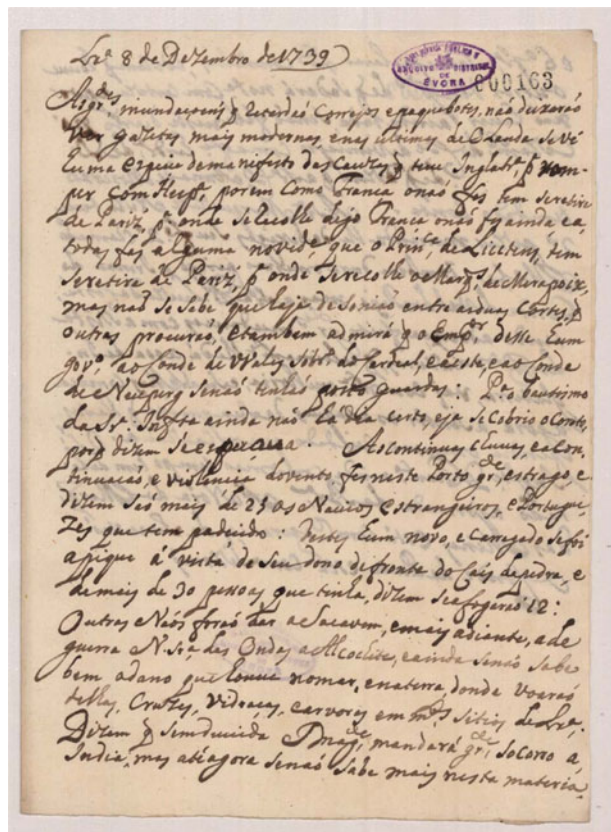 Lxª 8 de Dezembro de 1739
BIBLIOTECA PUBLICA E
ARQUIVO DISTRITAL
DE
EVORA
000163
As grdes mundacoens q̃ retardaõ Correjos e paquebotes, naõ deixaraõ
ver gazetas mais modernas, e nas ultimas de Olanda se vé
huma especie de manifesto das Cauzas q̃ teve Inglatrª pª rom-
per com Hespª, porem como Franca o naõ fes tem se retire
de Pariz, pª onde se recolhe dejo Franca o naõ fes ainda e a
todos fas alguma novide, que o Prince de Liectens, tem
se retira de Pariz, pª onde se recolhe o Marqs de Merapoix,
mas naõ se sabe que haja desuniaõ entre as duas Cortes, q̃
outros procuraõ, e tambem admira q̃ o Empor desse hum
govº ao Conde de Wales sobrº do Cardeal, e a este, e ao Conde
de Neuperg se naõ tinhaõ posto guardas: Pª o bautismo
da Srª Infta ainda naõ ha dia certo, e ja se cobrio o Coreto,
por q̃ dizem se esperava. As continuas chuvas, e a con-
tinuacaõ, e violencia do vento fes neste Porto grde estrago, e
dizem saõ mais de 23 os Navios estrangeiros, e Portugue-
zes que tem padecido: destes hum novo, e carregado se foi
a pique á vista de seu dono defronte do Cais de pedra, e
de mais de 30 pessoas que tinha, dizem se afogaraõ 12:
Outras Náos foraõ dar a Sacavem, e mais adiante, a de
guerra N. Srª das Ondas a Alcochete, e ainda se naõ sabe
bem o dano que houve no mar, e na terra, donde voaraõ
telhas, Cruzes, vidracas, e arvores em mtos sitios de Lxª.
Dizem q̃ sem duvida S Magde mandará grde socorro a
India, mas até agora se naõ sabe mais nesta materia.